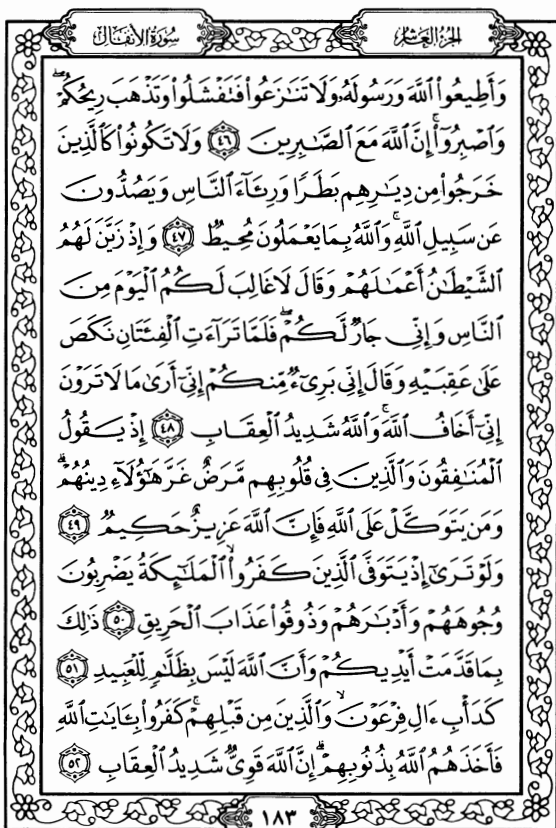 سُورَةُ الأَنفَال الجُزءُ العَاشِر
وَأَطِيعُوا۟ ٱللَّهَ وَرَسُولَهُۥ وَلَا تَنَٰزَعُوا۟ فَتَفْشَلُوا۟ وَتَذْهَبَ رِيحُكُمْ ۖ
وَٱصْبِرُوٓا۟ ۚ إِنَّ ٱللَّهَ مَعَ ٱلصَّٰبِرِينَ ٤٦ وَلَا تَكُونُوا۟ كَٱلَّذِينَ
خَرَجُوا۟ مِن دِيَٰرِهِم بَطَرًا وَرِئَآءَ ٱلنَّاسِ وَيَصُدُّونَ
عَن سَبِيلِ ٱللَّهِ ۚ وَٱللَّهُ بِمَا يَعْمَلُونَ مُحِيطٌ ٤٧ وَإِذْ زَيَّنَ لَهُمُ
ٱلشَّيْطَٰنُ أَعْمَٰلَهُمْ وَقَالَ لَا غَالِبَ لَكُمُ ٱلْيَوْمَ مِنَ
ٱلنَّاسِ وَإِنِّى جَارٌ لَّكُمْ ۖ فَلَمَّا تَرَآءَتِ ٱلْفِئَتَانِ نَكَصَ
عَلَىٰ عَقِبَيْهِ وَقَالَ إِنِّى بَرِىٓءٌ مِّنكُمْ إِنِّىٓ أَرَىٰ مَا لَا تَرَوْنَ
إِنِّىٓ أَخَافُ ٱللَّهَ ۚ وَٱللَّهُ شَدِيدُ ٱلْعِقَابِ ٤٨ إِذْ يَقُولُ
ٱلْمُنَٰفِقُونَ وَٱلَّذِينَ فِى قُلُوبِهِم مَّرَضٌ غَرَّ هَٰٓؤُلَآءِ دِينُهُمْ ۗ
وَمَن يَتَوَكَّلْ عَلَى ٱللَّهِ فَإِنَّ ٱللَّهَ عَزِيزٌ حَكِيمٌ ٤٩
وَلَوْ تَرَىٰٓ إِذْ يَتَوَفَّى ٱلَّذِينَ كَفَرُوا۟ ۙ ٱلْمَلَٰٓئِكَةُ يَضْرِبُونَ
وُجُوهَهُمْ وَأَدْبَٰرَهُمْ وَذُوقُوا۟ عَذَابَ ٱلْحَرِيقِ ٥٠ ذَٰلِكَ
بِمَا قَدَّمَتْ أَيْدِيكُمْ وَأَنَّ ٱللَّهَ لَيْسَ بِظَلَّٰمٍ لِّلْعَبِيدِ ٥١
كَدَأْبِ ءَالِ فِرْعَوْنَ ۙ وَٱلَّذِينَ مِن قَبْلِهِمْ ۚ كَفَرُوا۟ بِـَٔايَٰتِ ٱللَّهِ
فَأَخَذَهُمُ ٱللَّهُ بِذُنُوبِهِمْ ۗ إِنَّ ٱللَّهَ قَوِىٌّ شَدِيدُ ٱلْعِقَابِ ٥٢
١٨٣